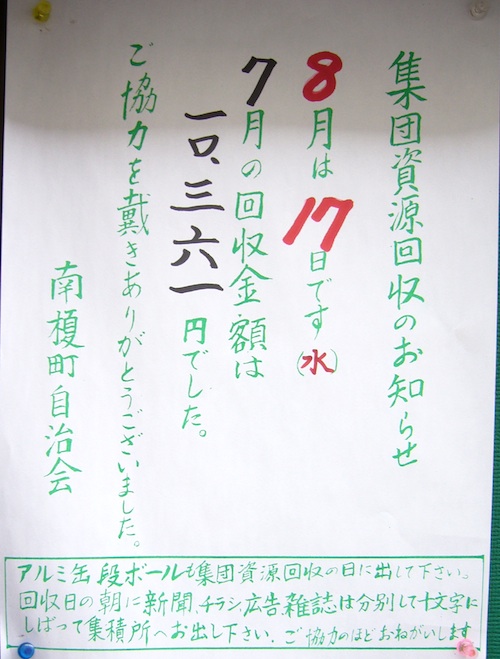 集団資源回収のお知らせ
8月は17日です(水)
7月の回収金額は
一〇、三六一円でした。
ご協力を戴きありがとうございました。
南榎町自治会
アルミ缶段ボールも集団資源回収の日に出して下さい。
回収日の朝に新聞、チラシ、広告、雑誌は分別して十文字に
しばって集積所へお出し下さい、ご協力のほどおねがいします